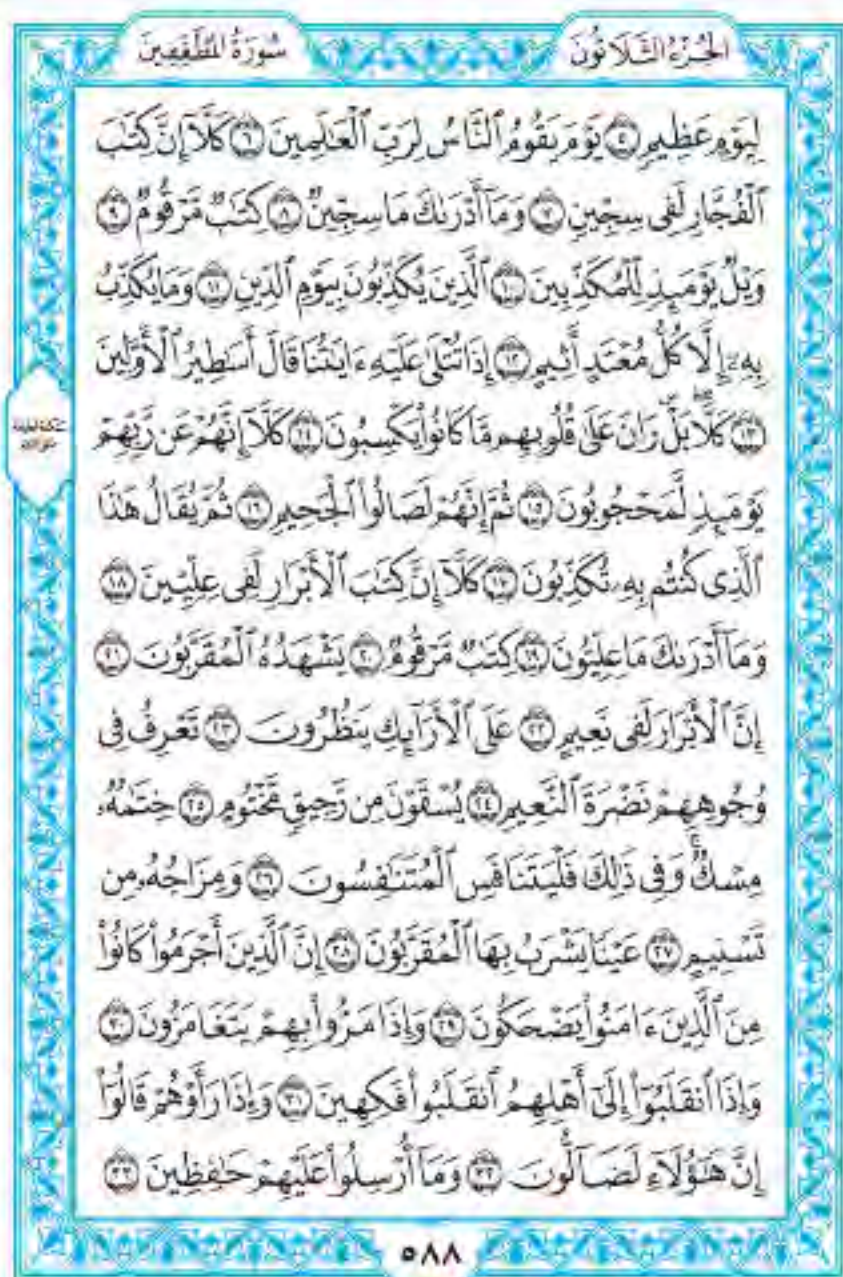 سُورَةُ المُطَفِّفِينَ
الجُزْءُ الثَّلَاثُونَ
لِيَوْمٍ عَظِيمٍ ٥ يَوْمَ يَقُومُ ٱلنَّاسُ لِرَبِّ ٱلْعَٰلَمِينَ ٦ كَلَّآ إِنَّ كِتَٰبَ
ٱلْفُجَّارِ لَفِى سِجِّينٍ ٧ وَمَآ أَدْرَىٰكَ مَا سِجِّينٌ ٨ كِتَٰبٌ مَّرْقُومٌ ٩
وَيْلٌ يَوْمَئِذٍ لِّلْمُكَذِّبِينَ ١٠ ٱلَّذِينَ يُكَذِّبُونَ بِيَوْمِ ٱلدِّينِ ١١ وَمَا يُكَذِّبُ
بِهِۦٓ إِلَّا كُلُّ مُعْتَدٍ أَثِيمٍ ١٢ إِذَا تُتْلَىٰ عَلَيْهِ ءَايَٰتُنَا قَالَ أَسَٰطِيرُ ٱلْأَوَّلِينَ
١٣ كَلَّا ۖ بَلْ ۜ رَانَ عَلَىٰ قُلُوبِهِم مَّا كَانُوا۟ يَكْسِبُونَ ١٤ كَلَّآ إِنَّهُمْ عَن رَّبِّهِمْ
يَوْمَئِذٍ لَّمَحْجُوبُونَ ١٥ ثُمَّ إِنَّهُمْ لَصَالُوا۟ ٱلْجَحِيمِ ١٦ ثُمَّ يُقَالُ هَٰذَا
ٱلَّذِى كُنتُم بِهِۦ تُكَذِّبُونَ ١٧ كَلَّآ إِنَّ كِتَٰبَ ٱلْأَبْرَارِ لَفِى عِلِّيِّينَ ١٨
وَمَآ أَدْرَىٰكَ مَا عِلِّيُّونَ ١٩ كِتَٰبٌ مَّرْقُومٌ ٢٠ يَشْهَدُهُ ٱلْمُقَرَّبُونَ ٢١
إِنَّ ٱلْأَبْرَارَ لَفِى نَعِيمٍ ٢٢ عَلَى ٱلْأَرَآئِكِ يَنظُرُونَ ٢٣ تَعْرِفُ فِى
وُجُوهِهِمْ نَضْرَةَ ٱلنَّعِيمِ ٢٤ يُسْقَوْنَ مِن رَّحِيقٍ مَّخْتُومٍ ٢٥ خِتَٰمُهُۥ
مِسْكٌ ۚ وَفِى ذَٰلِكَ فَلْيَتَنَافَسِ ٱلْمُتَنَٰفِسُونَ ٢٦ وَمِزَاجُهُۥ مِن
تَسْنِيمٍ ٢٧ عَيْنًا يَشْرَبُ بِهَا ٱلْمُقَرَّبُونَ ٢٨ إِنَّ ٱلَّذِينَ أَجْرَمُوا۟ كَانُوا۟
مِنَ ٱلَّذِينَ ءَامَنُوا۟ يَضْحَكُونَ ٢٩ وَإِذَا مَرُّوا۟ بِهِمْ يَتَغَامَزُونَ ٣٠
وَإِذَا ٱنقَلَبُوٓا۟ إِلَىٰٓ أَهْلِهِمُ ٱنقَلَبُوا۟ فَكِهِينَ ٣١ وَإِذَا رَأَوْهُمْ قَالُوٓا۟
إِنَّ هَٰٓؤُلَآءِ لَضَآلُّونَ ٣٢ وَمَآ أُرْسِلُوا۟ عَلَيْهِمْ حَٰفِظِينَ ٣٣
٥٨٨